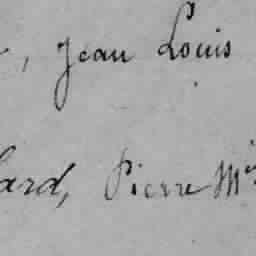 , Jean Louis
ard, Pierre M